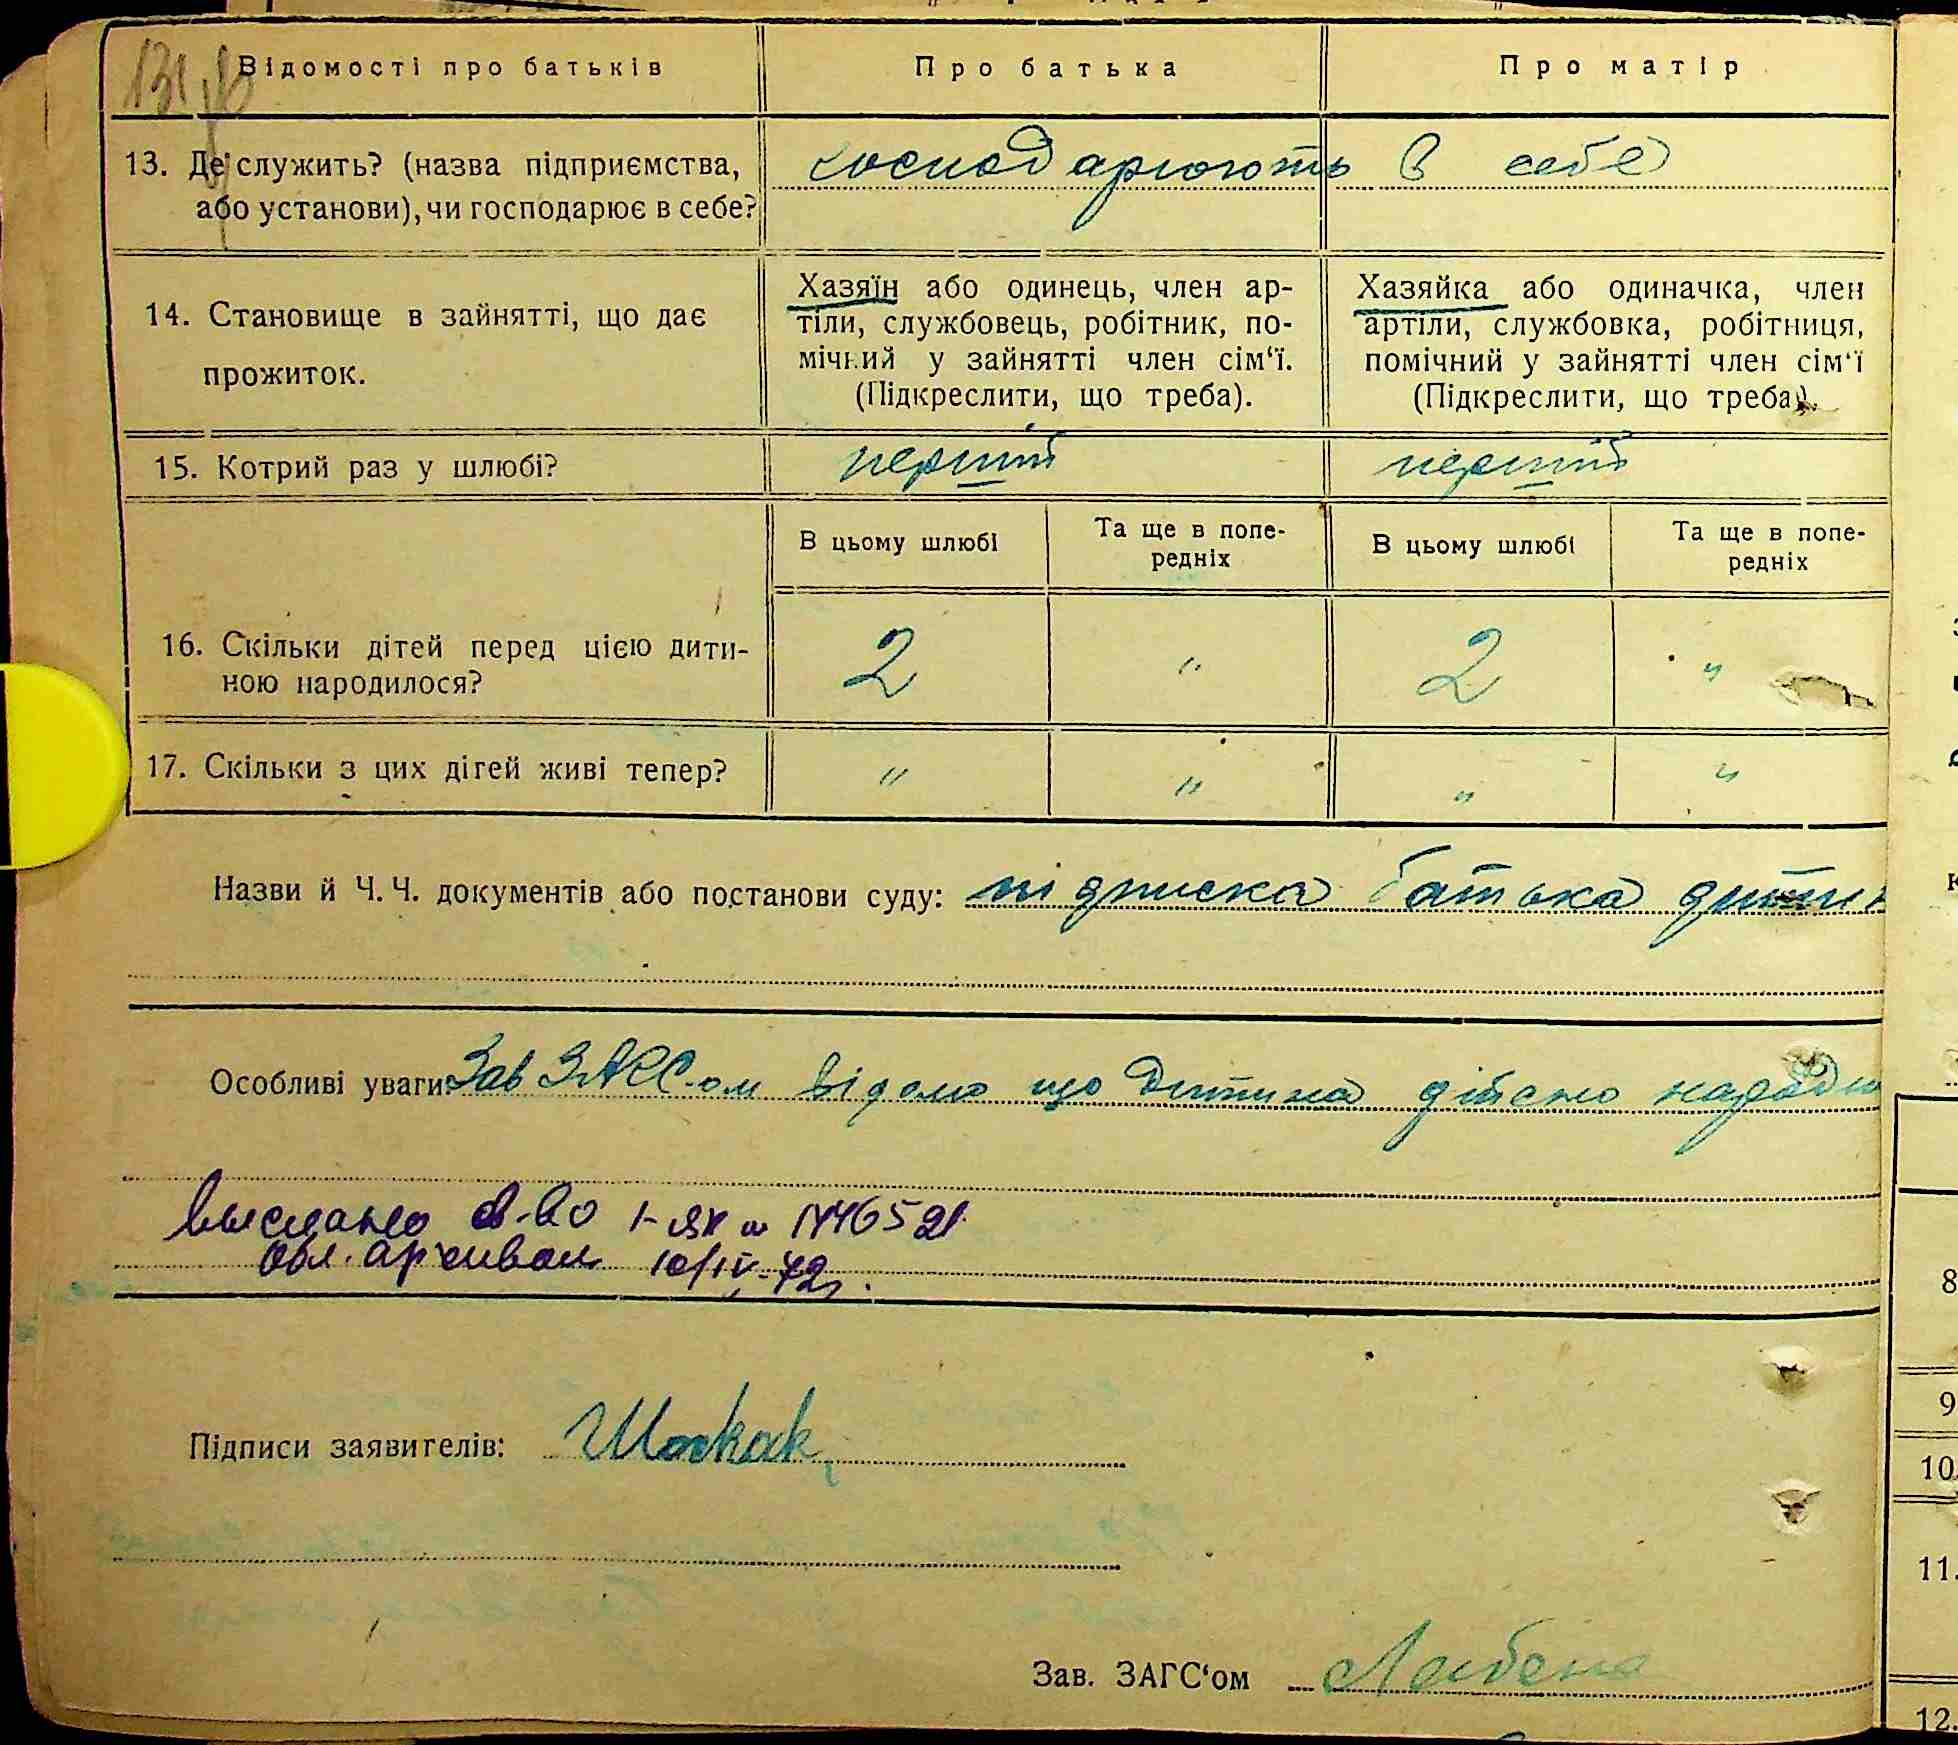 131
Відомості про батьків
Про батька
Про матір
13. Де служить? (назва підприємства,
або установи), чи господарює в себе?
господарюють в себе
14. Становище в зайнятті, що дає
прожиток.
Хазяїн або одинець, член ар-
тіли, службовець, робітник, по-
мічний у зайнятті член сім‘ї.
(Підкреслити, що треба).
Хазяйка або одиначка, член
артіли, службовка, робітниця,
помічний у зайнятті член сім‘ї
(Підкреслити, що треба).
15. Котрий раз у шлюбі?
перший
перший
В цьому шлюбі
Та ще в попе-
редніх
В цьому шлюбі
Та ще в попе-
редніх
16. Скільки дітей перед цією дити-
ною народилося?
2 " 2 "
17. Скільки з цих дітей живі тепер?
" " " "
Назви й Ч. Ч. документів або постанови суду: підписка батька дитин
Особливі уваги: Зав ЗАГС-ом відомо що дитина дійсно народи
Выслано св-во І-ЯК №
Обл. архивом 10/IV-72г.
Підписи заявителів:
Зав. ЗАГС‘ом
8
9
10
11.
12.